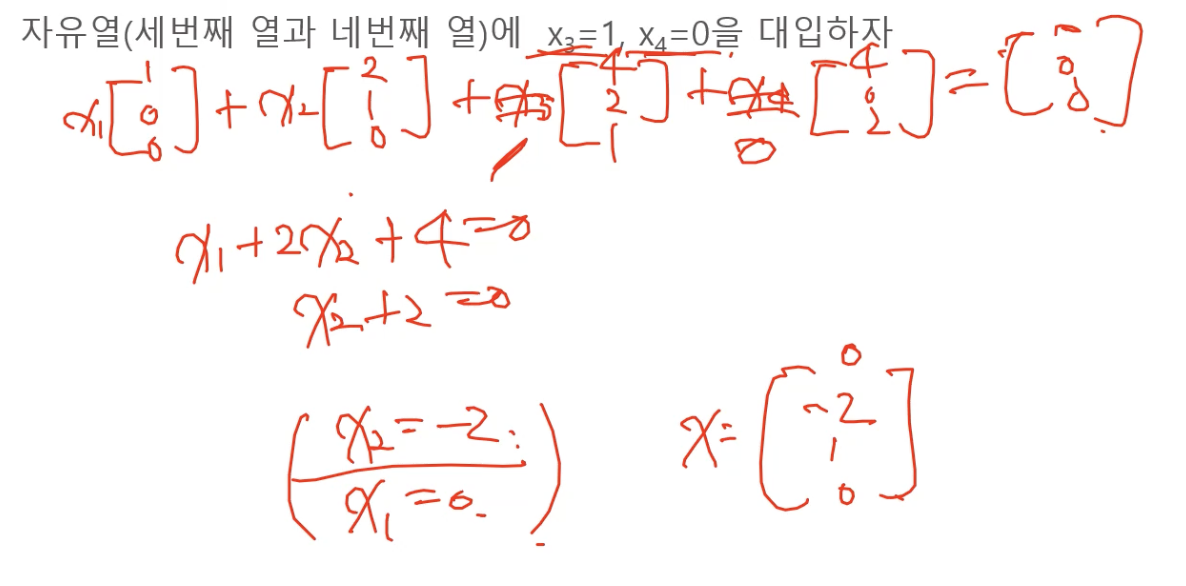 자유열(세번째 열과 네번째 열)에 x₃=1, x₄=0을 대입하자
x₁[1 0 0] + x₂[2 1 0] + x₃[4 2 1] + x₄[4 0 2] = [0 0]
1 0
x₁+2x₂+4=0
x₂+2=0
x₂=-2
x₁=0
x=[0 -2 1 0]